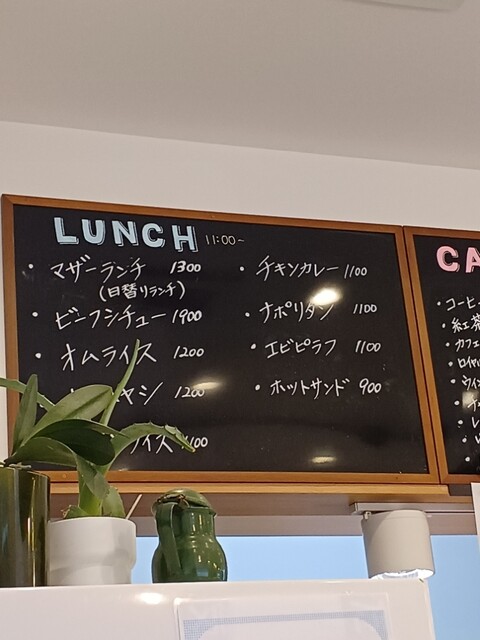 LUNCH 11:00~
・マザーランチ 1300
(日替りランチ)
・ビーフシチュー 1900
・オムライス 1200
ヤシ 1200
イス
・チキンカレー 1100
・ナポリタン 1100
・エビピラフ 1100
・ホットサンド 900
CA
・コーヒ
・紅茶
・カフェ
・ロイヤル
・ウイン